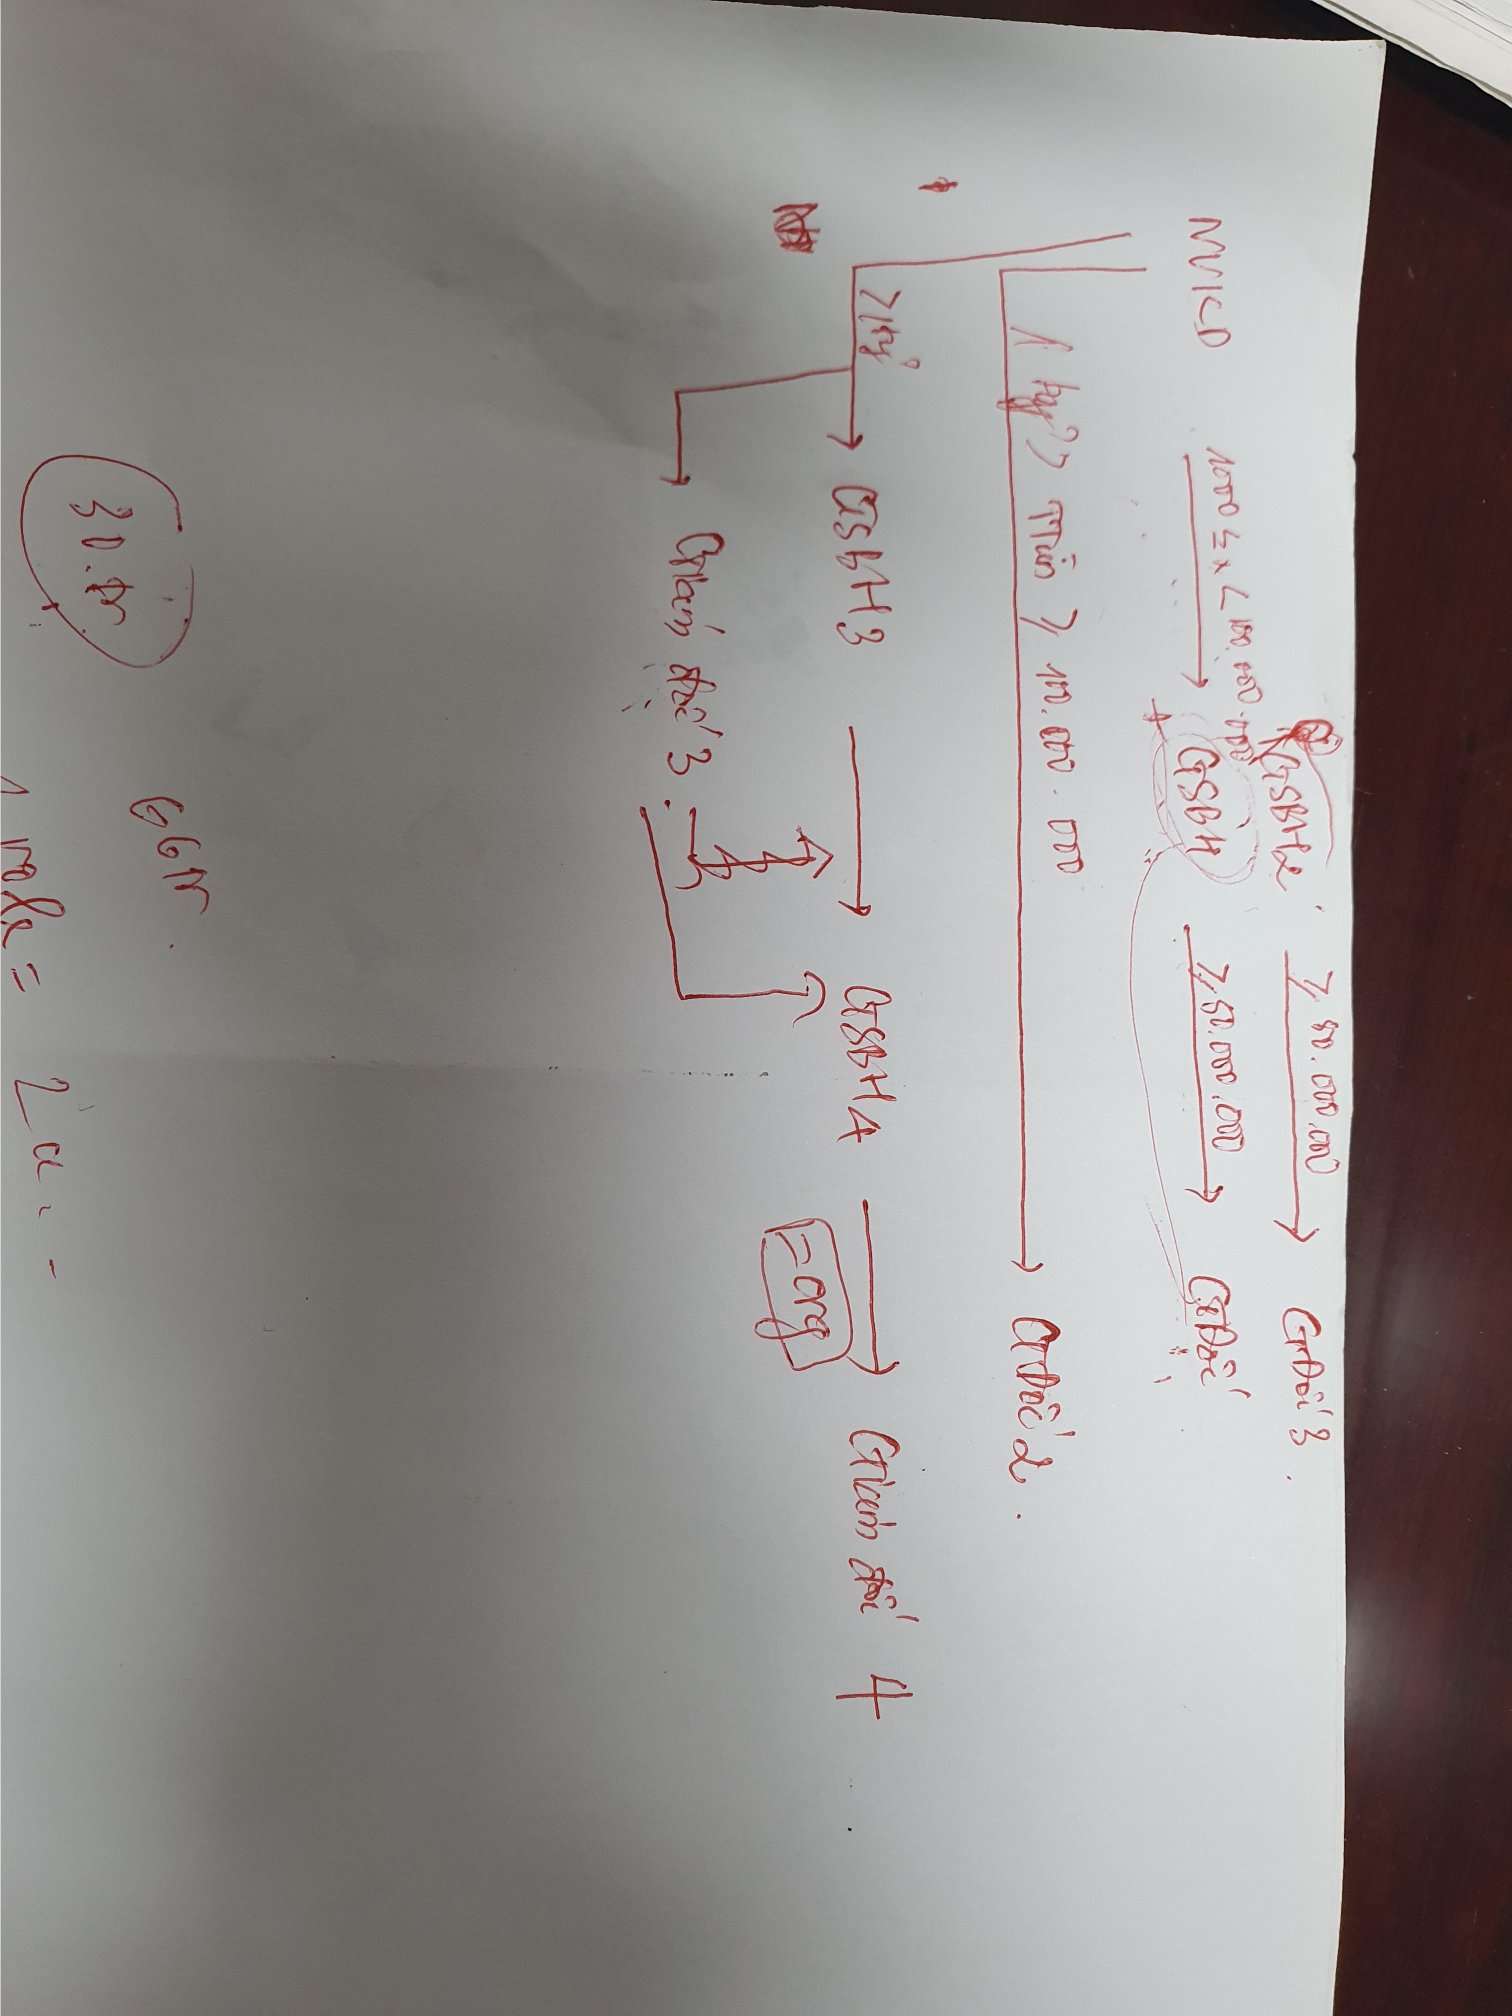 GSBH2 ≥ 50.000.000 GĐốc 3.
NVKD 1000 ≤ x < 100.000.000 GSBH ≥ 50.000.000 GĐốc
1 tỷ > TTiền ≥ 100.000.000 GĐốc 2.
≥ 1 tỷ GSBH3 GSBH4 Giám đốc 4
= org
Giám đốc 3
66tr.
30.tr
1 role = 2 a..